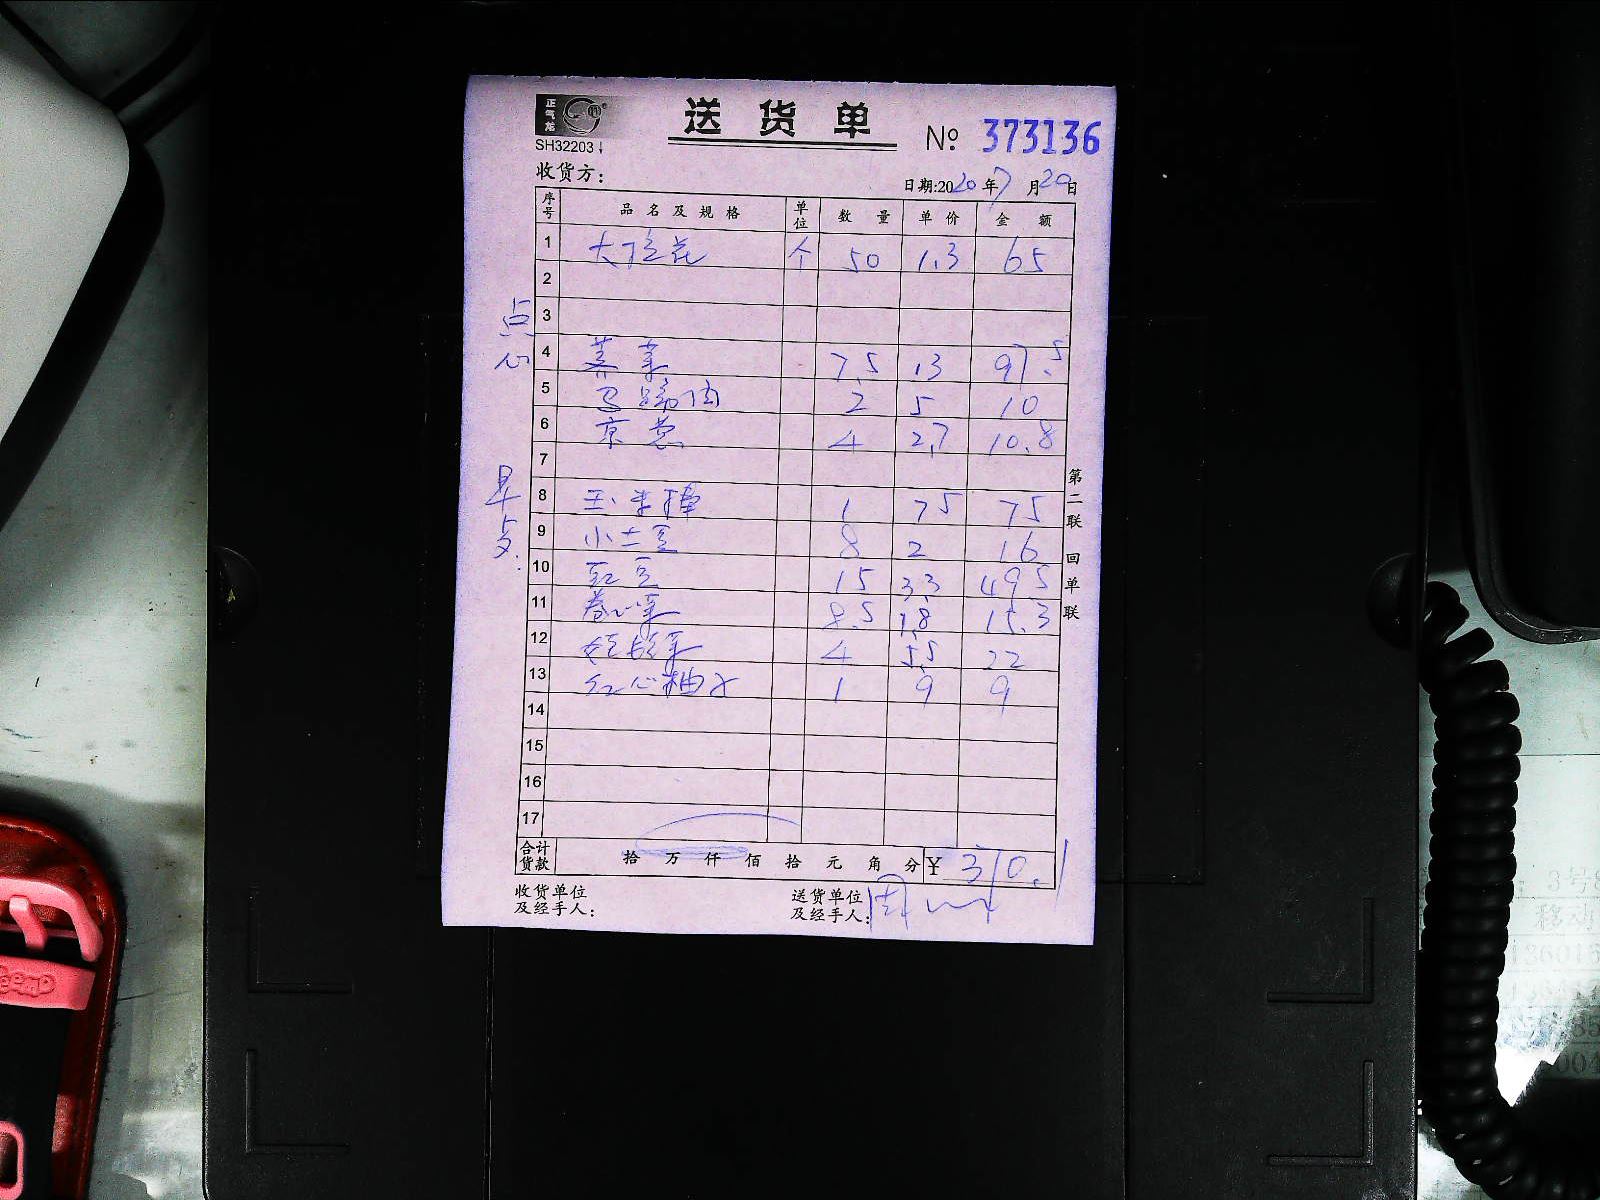 正气龙
送货单
№ 373136
SH32203
收货方：
日期:2020年7月20日
序号 品名及规格 单位 数量 单价 金额
1 大拉花 个 50 1.3 65
2
3
点心
4 荠菜 7.5 13 97.5
5 马蹄肉 2 5 10
6 京葱 4 2.7 10.8
7
早点
8 玉米棒 1 75 75
9 小土豆 8 2 16
10 豇豆 15 3.3 49.5
11 卷心菜 8.5 1.8 15.3
12 4 5.5 22
13 红心柚子 1 9 9
14
15
16
17
合计货款 拾万仟佰拾元角分 ¥ 310.1
收货单位及经手人：
送货单位及经手人：
第二联 回单联
3号
移动